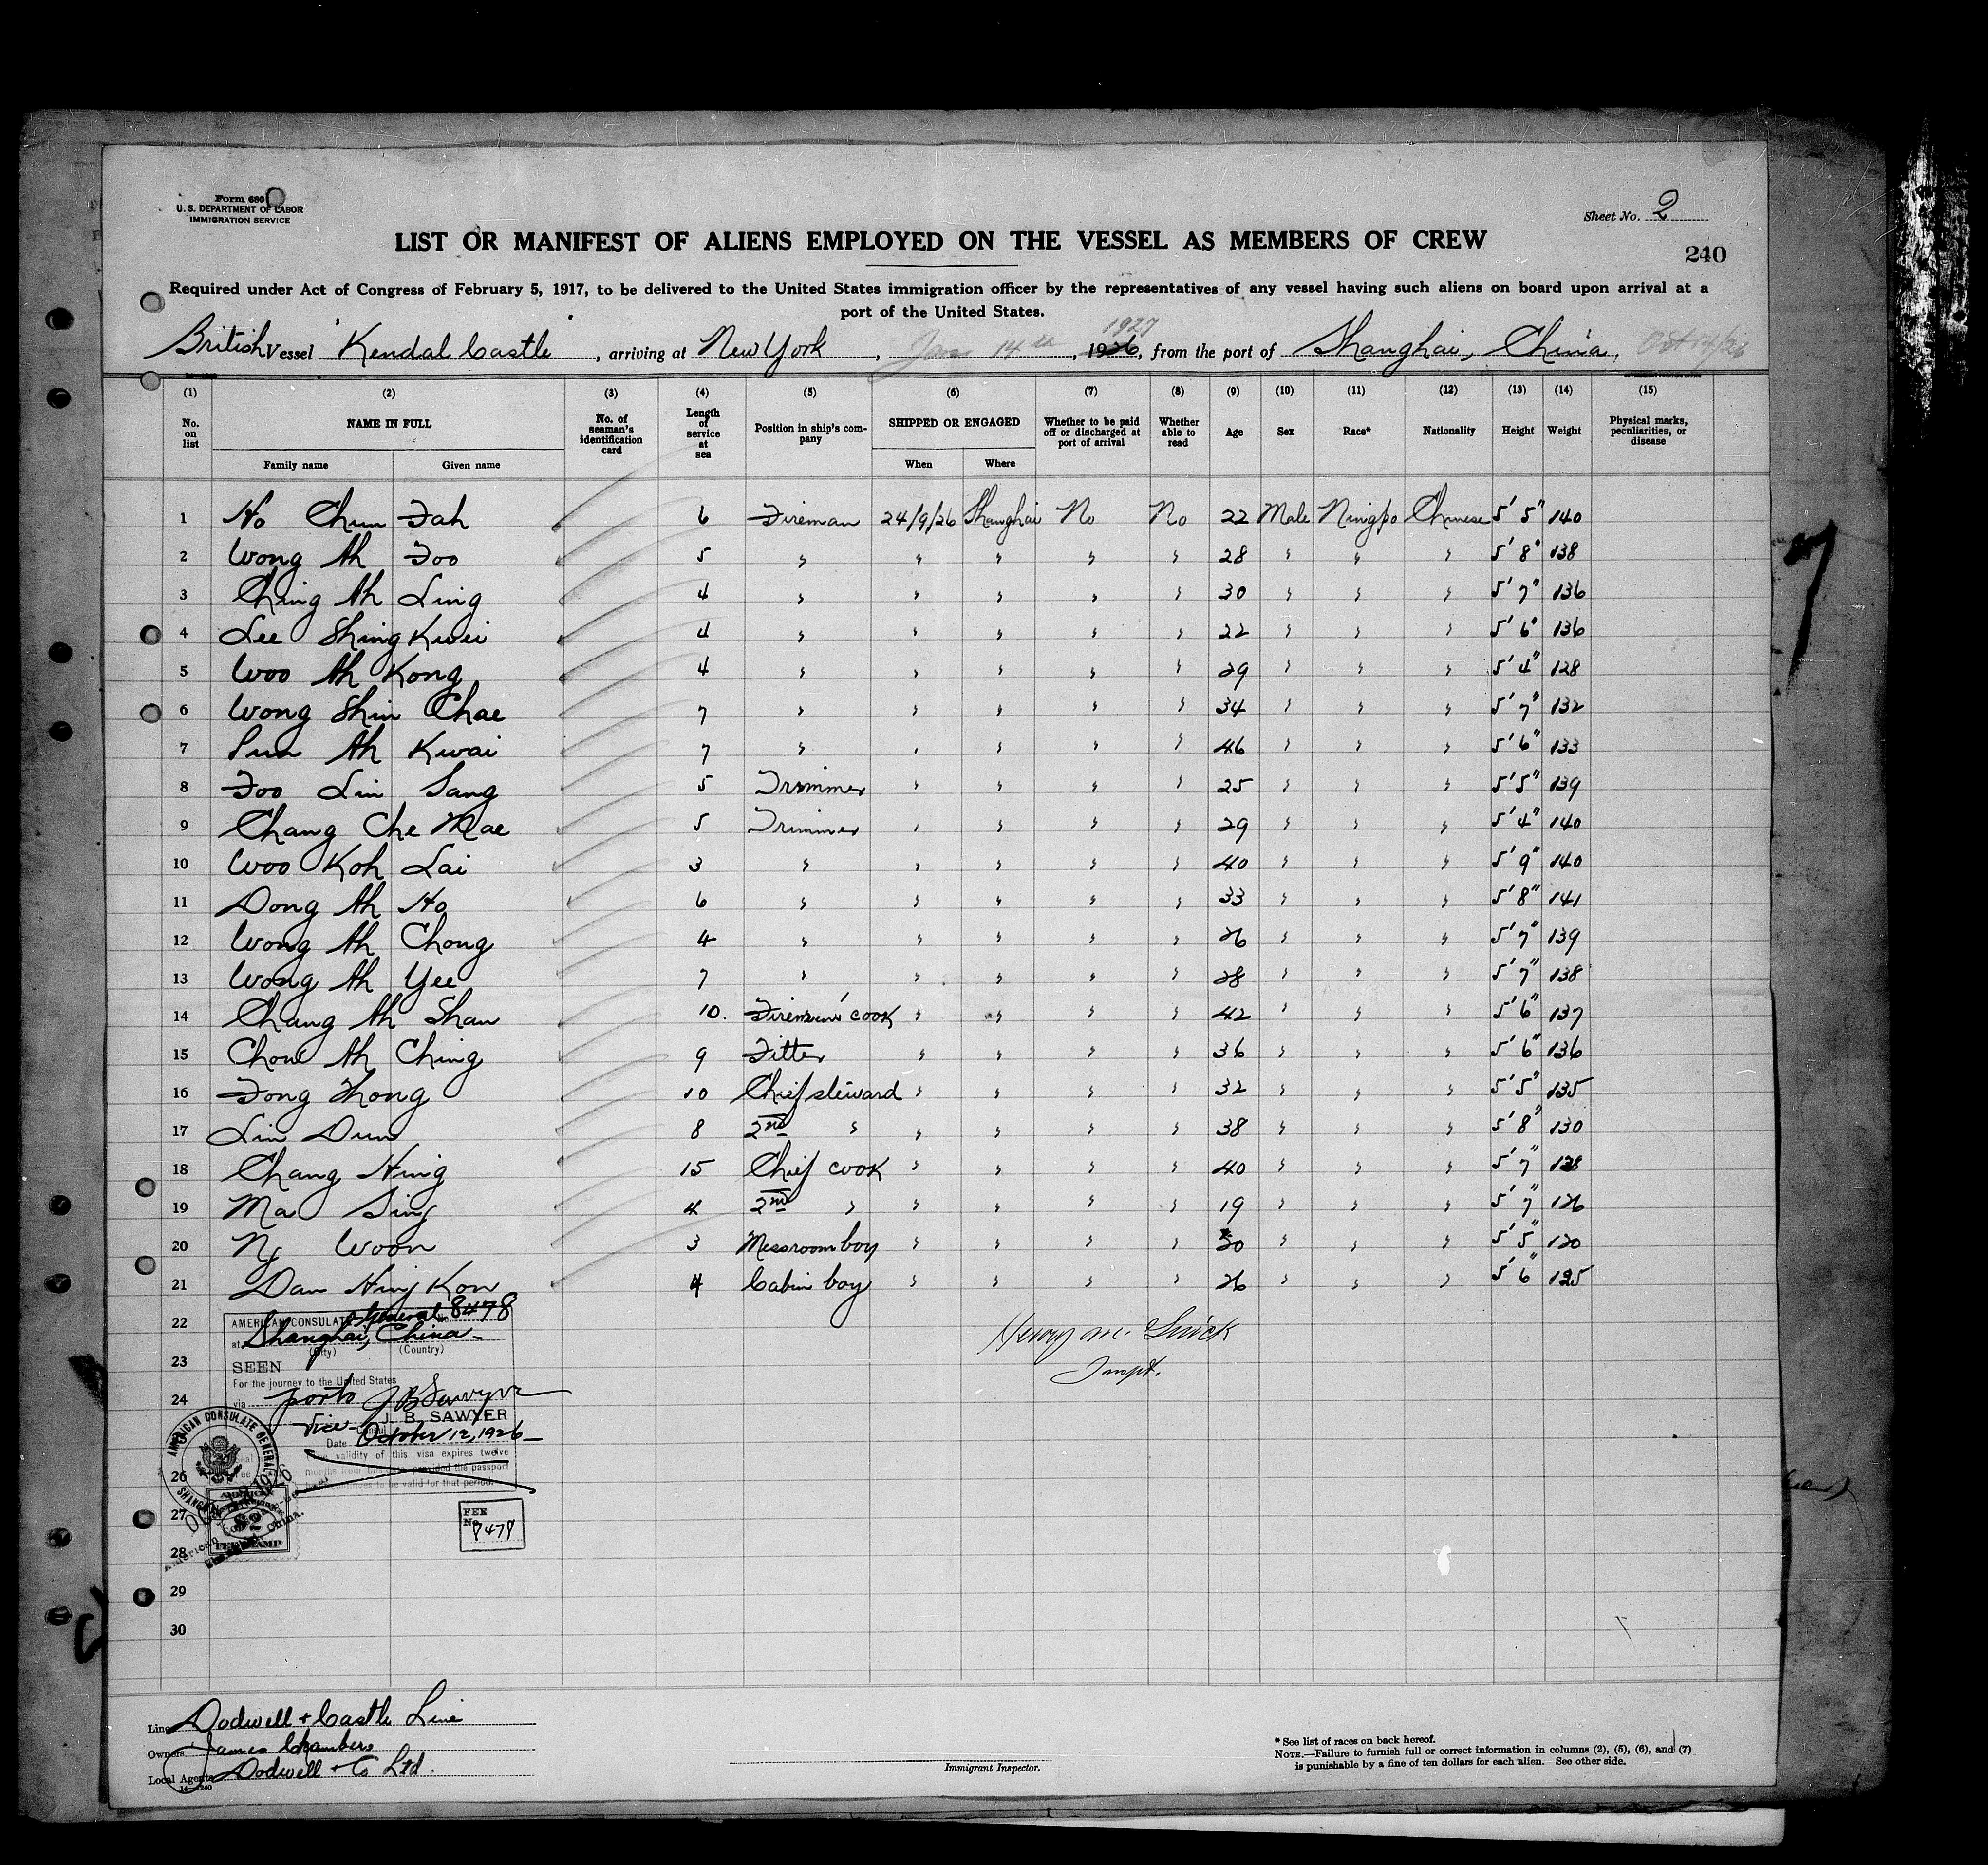 Form 680
U. S. DEPARTMENT OF LABOR
IMMIGRATION SERVICE
Sheet No. 2
LIST OR MANIFEST OF ALIENS EMPLOYED ON THE VESSEL AS MEMBERS OF CREW
240
Required under Act of Congress of February 5, 1917, to be delivered to the United States immigration officer by the representatives of any vessel having such aliens on board upon arrival at a
port of the United States.
1927
British Vessel "Kendal Castle", arriving at New York, Jan 14th, 1926, from the port of Shanghai, China, Oct 14/26
(1) (2) (3) (4) (5) (6) (7) (8) (9) (10) (11) (12) (13) (14) (15)
No. on list NAME IN FULL No. of seaman's identification card Length of service at sea Position in ship's company SHIPPED OR ENGAGED Whether to be paid off or discharged at port of arrival Whether able to read Age Sex Race* Nationality Height Weight Physical marks, peculiarities, or disease
Family name Given name When Where
1 Ho Chun Fah 6 Fireman 24/9/26 Shanghai No No 22 Male Ningpo Chinese 5' 5" 140
2 Wong Ah Foo 5 " " " " " 28 " " " 5' 8" 138
3 Ching Ah Ling 4 " " " " " 30 " " " 5' 7" 136
4 Lee Shing Kwei 4 " " " " " 22 " " " 5' 6" 136
5 Woo Ah Kong 4 " " " " " 29 " " " 5' 4" 128
6 Wong Shin Chae 7 " " " " " 34 " " " 5' 7" 132
7 Sun Ah Kwai 7 " " " " " 46 " " " 5' 6" 133
8 Foo Lin Sang 5 Trimmer " " " " 25 " " " 5' 5" 139
9 Chang Che Mae 5 Trimmer " " " " 29 " " " 5' 4" 140
10 Woo Koh Lai 3 " " " " " 40 " " " 5' 9" 140
11 Dong Ah Ho 6 " " " " " 33 " " " 5' 8" 141
12 Wong Ah Chong 4 " " " " " 26 " " " 5' 7" 139
13 Wong Ah Yee 7 " " " " " 28 " " " 5' 7" 138
14 Chang Ah Shan 10. Firemen's cook " " " " 42 " " " 5' 6" 137
15 Chow Ah Ching 9 Fitter " " " " 36 " " " 5' 6" 136
16 Fong Thong 10 Chief steward " " " " 32 " " " 5' 5" 135
17 Lin Dun 8 2nd " " " " " 38 " " " 5' 8" 130
18 Chang Hing 15 Chief cook " " " " 40 " " " 5' 7" 128
19 Ma Sing 4 2nd " " " " " 19 " " " 5' 7" 126
20 Ng Woon 3 Messroom boy " " " " 20 " " " 5' 5" 120
21 Dan Hing Kon 4 Cabin boy " " " " 26 " " " 5' 6" 125
22 AMERICAN CONSULATE General No. 8478
at Shanghai, China
(City) (Country)
Henry M.
Inspt.
23 SEEN
For the journey to the United States
24 via ports J B Sawyer
J. B. SAWYER
Vice- Consul
Date October 12, 1926
validity of this visa expires twelve
months from this date provided the passport
continues to be valid for that period.
AMERICAN CONSULATE GENERAL
SHANGHAI
26
27
$2
FEE STAMP
28
FEE
No. 8478
29
30
Line Dodwell + Castle Line
Owners James Chambers
Local Agents Dodwell & Co Ltd.
14—1240
Immigrant Inspector.
* See list of races on back hereof.
NOTE.—Failure to furnish full or correct information in columns (2), (5), (6), and (7)
is punishable by a fine of ten dollars for each alien. See other side.